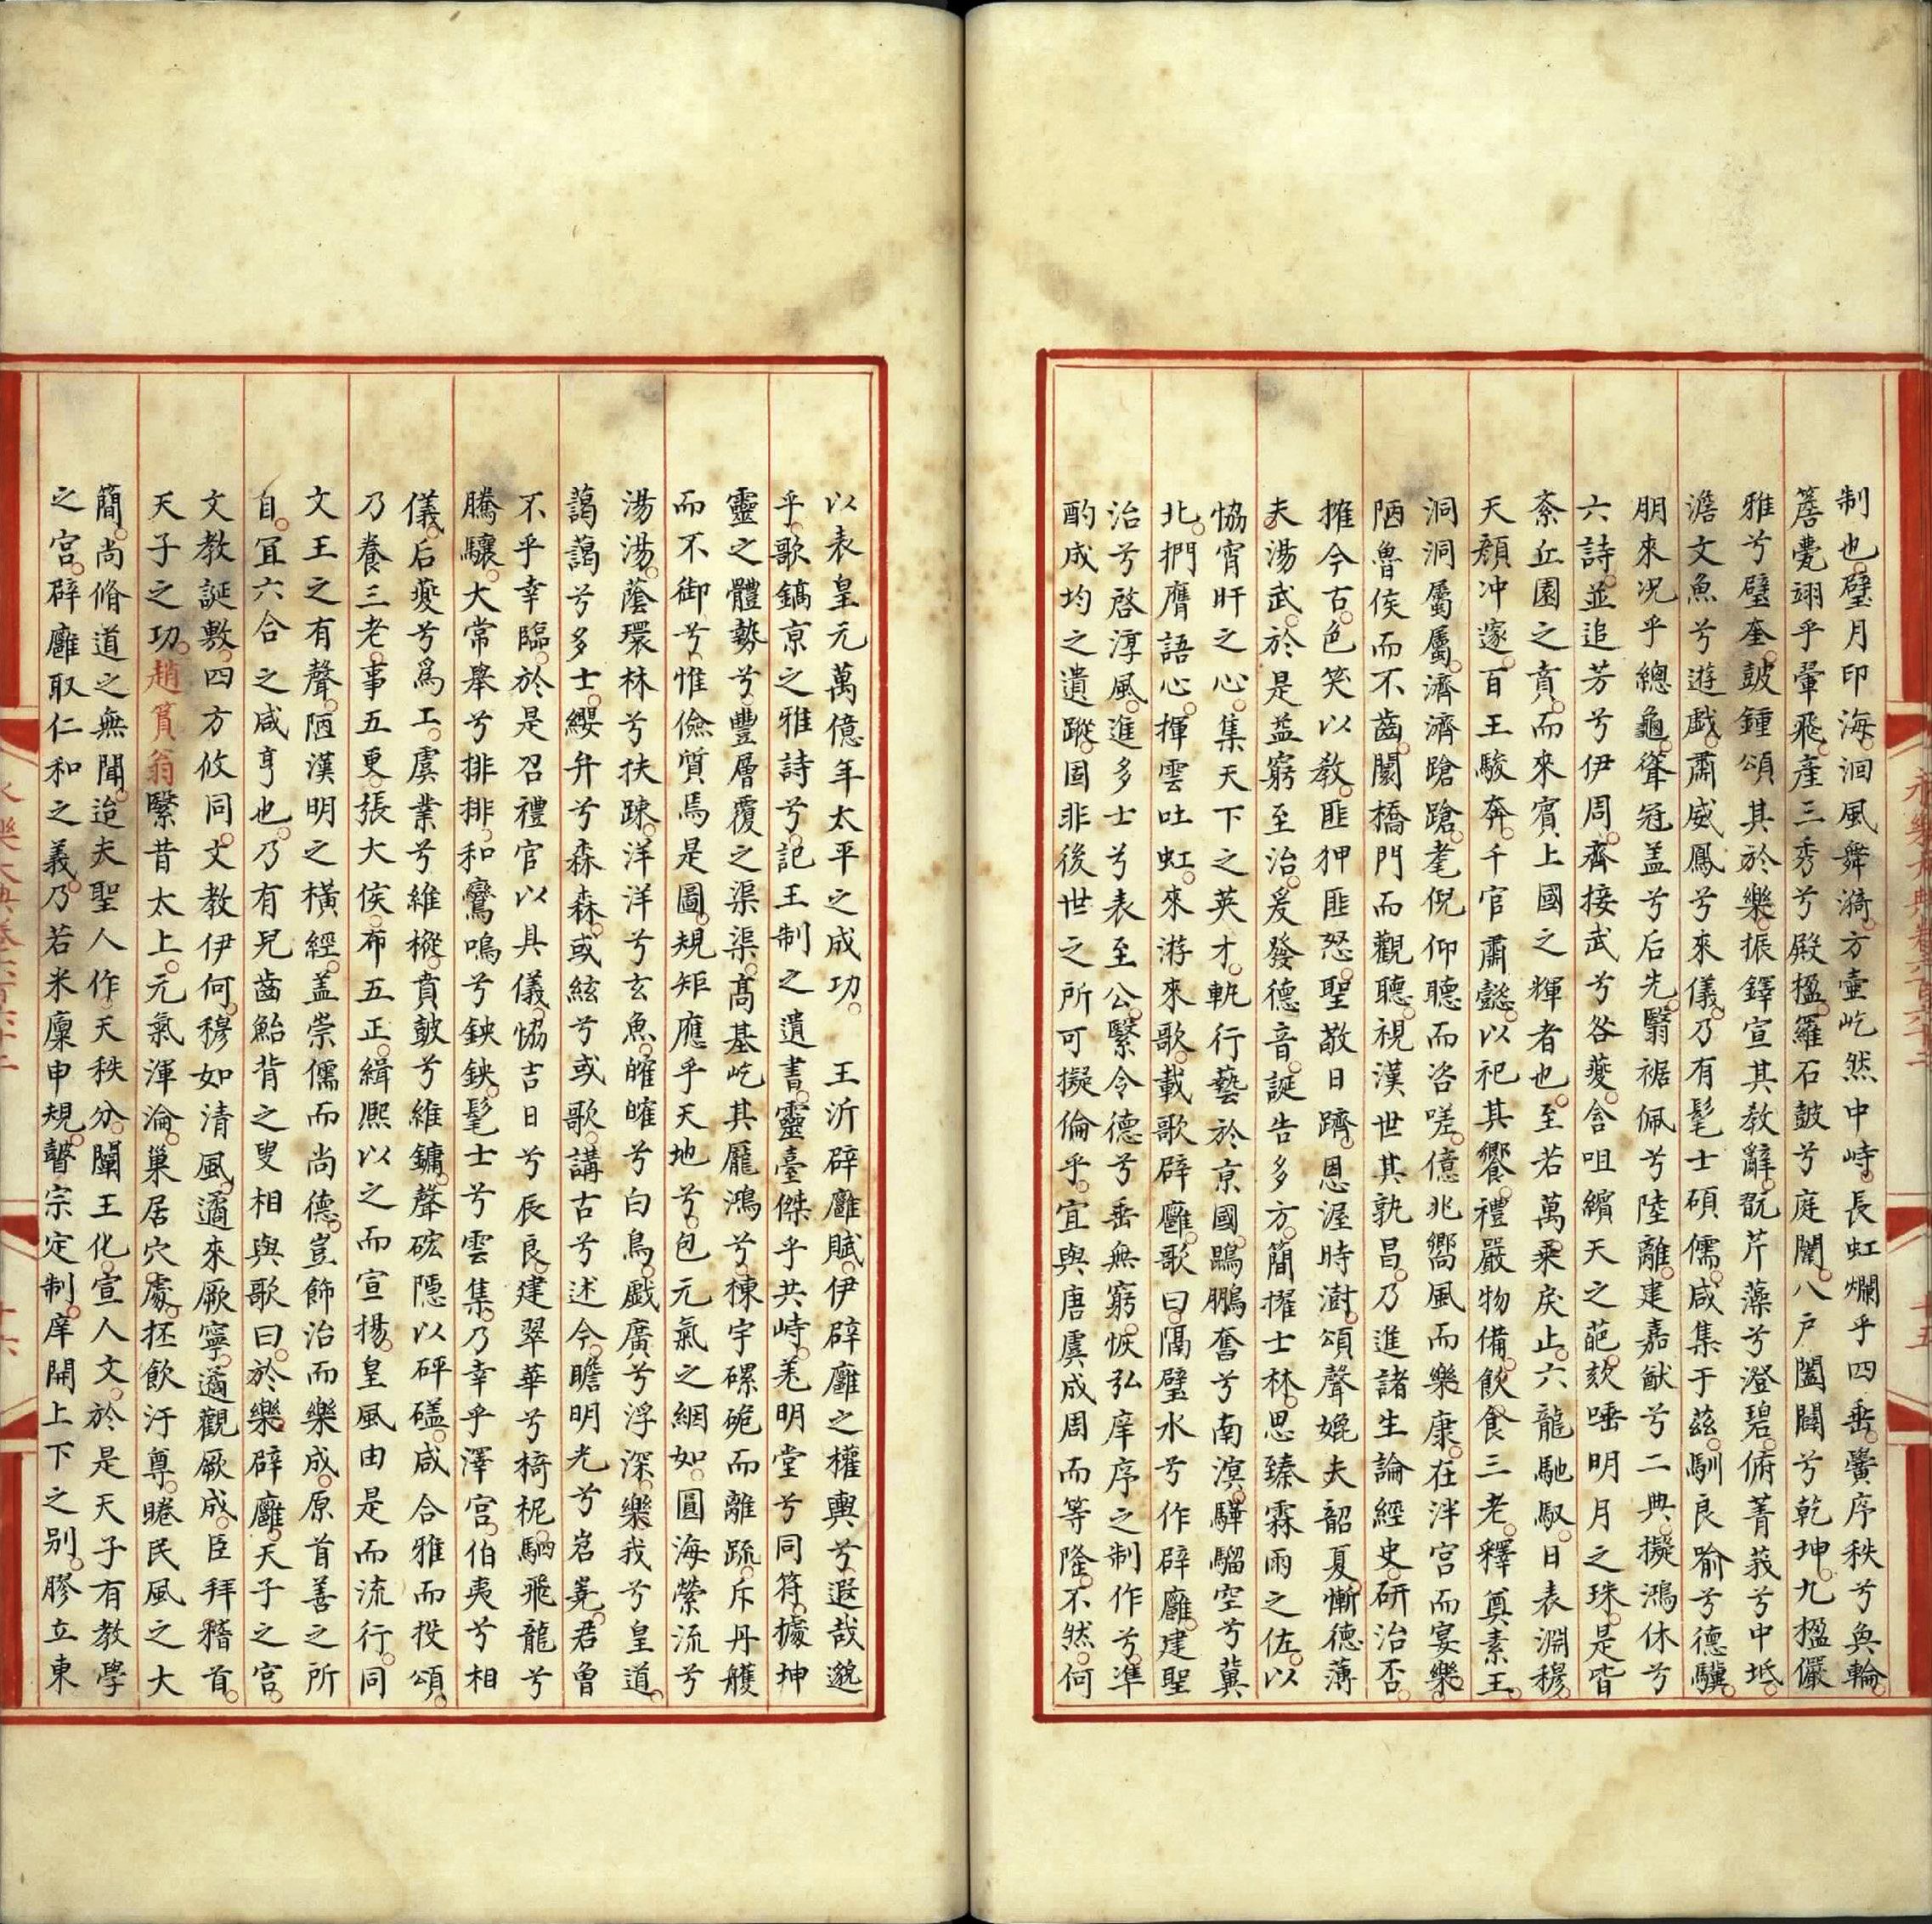 制也璧月印海洄風舞漪方壷屹然中峙長虹爛乎四垂黌序秩兮奐輪
簷甍翊乎翬飛產三秀兮殿楹羅石皷兮庭闈八戶闔闢兮乾坤九楹儼
雅兮璧奎皷鍾頌其於樂振鐸宣其教辭翫芹藻兮澄碧俯菁莪兮中坻
澹文魚兮遊戲肅威鳳兮來儀乃有髦士碩儒咸集于茲馴良喻兮德驥
朋來况乎總龜峩冠盖兮后先翳裾佩兮陸離建嘉猷兮二典擬鴻休兮
六詩並追芳兮伊周齊接武兮咎夔含咀繽天之葩欬唾明月之珠是皆
紊丘園之賁而來賓上國之輝者也至若萬乗戾止六龍馳馭日表淵穆
天顏冲邃百王駿奔千官肅懿以祀其饗禮嚴物備飲食三老釋奠素王
洞洞屬屬濟濟蹌蹌耄倪仰聽而咨嗟億兆嚮風而樂康在泮宮而宴樂
陋魯侯而不齒闤橋門而觀聽視漢世其孰昌乃進諸生論經史研治否
摧今古色笑以教匪狎匪怒聖敬日躋恩渥時澍頌聲媲夫韶夏慚德薄
夫湯武於是益窮至治爰發德音誕告多方簡擢士林思臻霖雨之佐以
恊宵旰之心集天下之英才軌行藝於京國鵾鵬奮兮南溟驊騮空兮冀
北捫膺語心揮雲吐虹來游來歌載歌辟廱歌曰隔璧水兮作辟廱建聖
治兮啓淳風進多士兮表至公繄令德兮垂無窮恢弘庠序之制作兮凖
酌成均之遺蹤固非後世之所可擬倫乎宜與唐虞成周而等隆不然何
以表皇元萬億年太平之成功 王沂辟廱賦伊辟廱之權輿兮遐哉邈
乎歌鎬京之雅詩兮記王制之遺書靈臺傑乎共峙羌明堂兮同符據坤
靈之體勢兮豐層覆之渠渠高基屹其龎鴻兮棟宇磥硊而離疏斥丹雘
而不御兮惟儉質焉是圖規矩應乎天地兮包元氣之綱如圓海縈流兮
湯湯蔭環林兮扶踈洋洋兮玄魚皬皬兮白鳥戲廣兮浮深樂我兮皇道
藹藹兮多士纓弁兮森森或絃兮或歌講古兮述今瞻明光兮岧嶤君曾
不乎幸臨於是召禮官以具儀恊吉日兮辰良建翠華兮猗柅駟飛龍兮
騰驤大常舉兮排排和鸞鳴兮鉠鉠髦士兮雲集乃幸乎澤宮伯夷兮相
儀后夔兮爲工虡業兮維樅賁皷兮維鏞聲硡隱以砰磕咸合雅而投頌
乃養三老事五更張大侯布五正緝熈以之而宣揚皇風由是而流行同
文王之有聲陋漢明之橫經盖崇儒而尚德豈飾治而樂成原首善之所
自冝六合之咸亨也乃有兒齒鮐背之叟相與歌曰於樂辟廱天子之宮
文教誕敷四方攸同文教伊何穆如清風遹來厥寧遹觀厥成臣拜稽首
天子之功趙篔翁繄昔太上元氣渾淪巢居穴處抔飲汙尊睠民風之大
簡尚脩道之無聞迨夫聖人作天秩分闡王化宣人文於是天子有教學
之宮辟廱取仁和之義乃若米廩申規瞽宗定制庠開上下之别膠立東